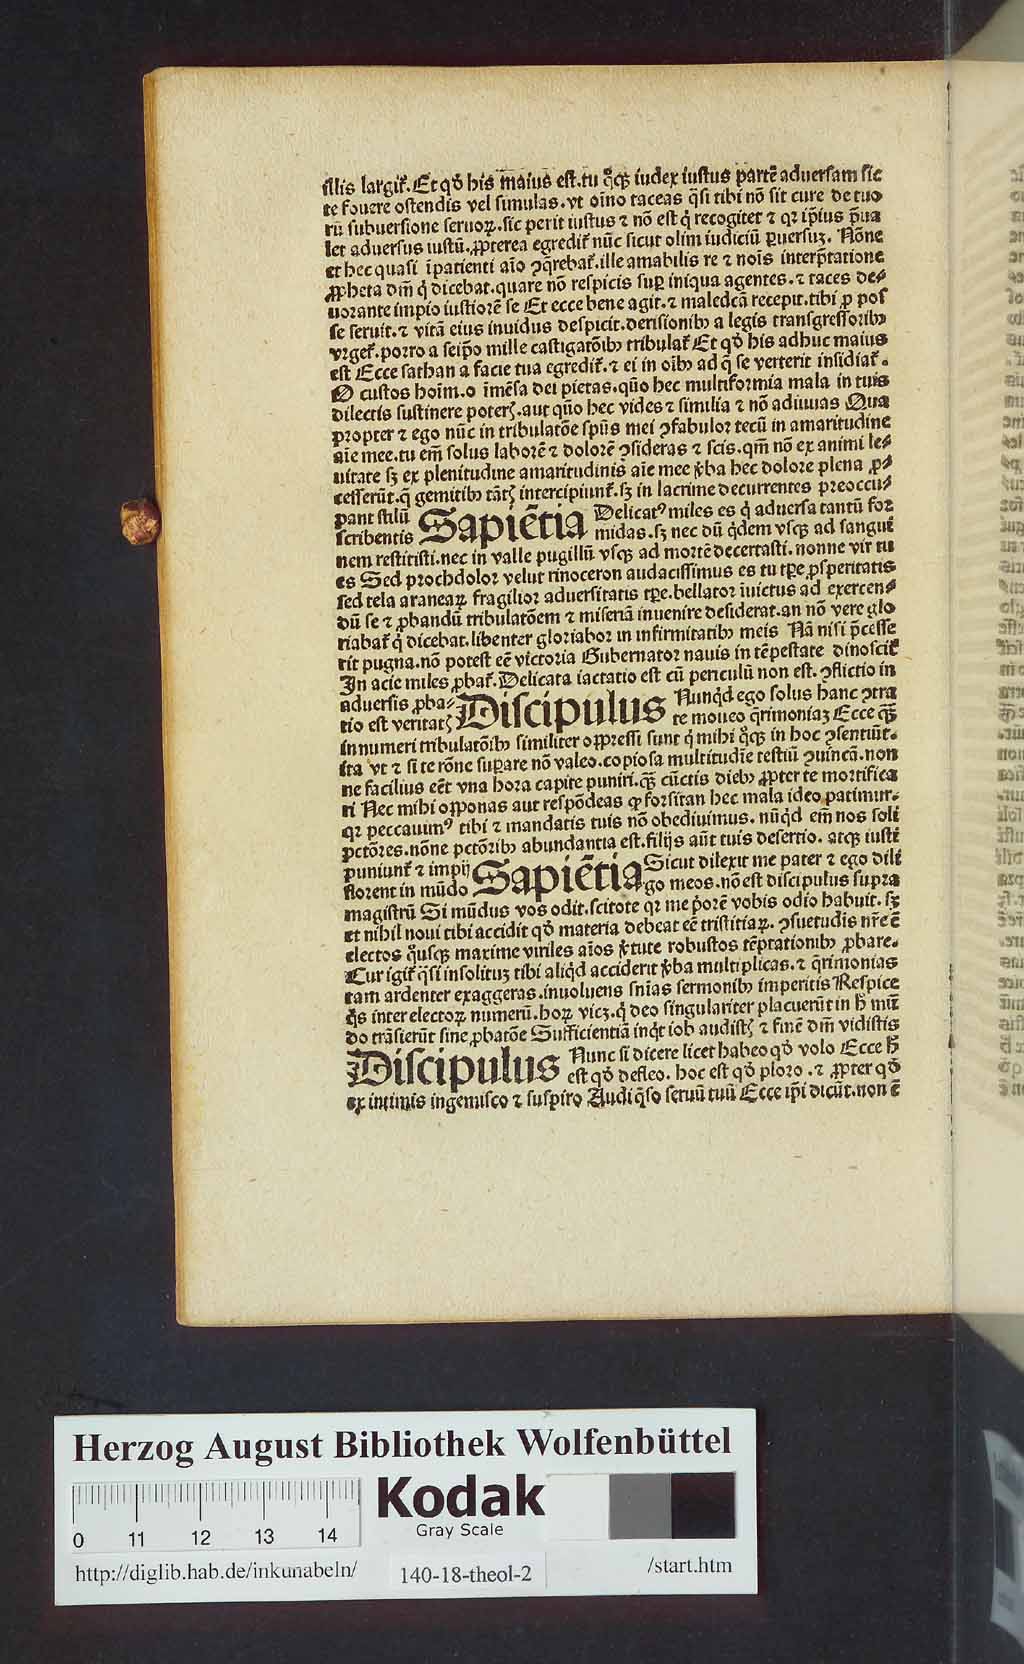 illis largit᷑. Et qď his maius est. tu qͦꝙ iudex iustus partē aduersam sic
te fouere ostendis vel simulas. vt oīno taceas q̄si tibi nō sit cure de tuo
rū subuersione seruoꝝ. sic perit iustus ⁊ nō est q̇ recogitet ⁊ qꝛ ip̄ius p̄ua
let aduersus iustū. ꝓpterea egredit᷑ nūc sicut olim iudiciū ꝑuersuꝫ. Nōne
et hec quasi īpatienti aīo ꝯq̄rebat᷑. ille amabilis re ⁊ noīs interp̄tatione
ꝓpheta dm̄ q̇ dicebat. quare nō respicis suꝑ iniqua agentes. ⁊ taces de⸗
uorante impio iustiorē se Et ecce bene agit. ⁊ maledcā recepit. tibi ꝓ pos
se seruit. ⁊ vitā eius inuidus despicit. derisionibꝫ a legis transgressoribꝫ
vrget᷑. porro a seip̄o mille castigatōibꝫ tribulat᷑ Et qď his adhuc maius
est Ecce sathan a facie tua egredit᷑. ⁊ ei in oībꝫ ad q̄ se verterit insidiat᷑.
O custos hoīm. o īmēsa dei pietas. quō hec multiformia mala in tuis
dilectis sustinere poteꝭ. aut quō hec vides ⁊ similia ⁊ nō adiuuas Qua
propter ⁊ ego nūc in tribulatōe spūs mei ꝯfabuloꝛ tecū in amaritudine
aīe mee. tu em̄ solus laborē ⁊ dolorē ꝯsideras ⁊ scis. qm̄ nō ex animi le⸗
uitate sꝫ ex plenitudine amaritudinis aīe mee v̇ba hec dolore plena ꝓ⸗
cesserūt. q̄ gemitibꝫ tātꝭ intercipiunt᷑. sꝫ in lacrime decurrentes preoccu⸗
pant stilū
scribentis Sapiētia Delicatꝰ miles es q̇ aduersa tantū for
midas. sꝫ nec dū q̇dem vsꝙ ad sangui
nem restitisti. nec in valle pugillū vsꝙ ad mortē decertasti. nonne vir tu
es Sed prochdoloꝛ velut rinoceron audacissimus es tu tꝑe ꝓsperitatis
sed tela araneaꝝ fragilioꝛ aduersitatis tꝑe. bellatoꝛ īuictus ad exercen⸗
dū se ⁊ ꝓbandū tribulatōem ⁊ miseriā inuenire desiderat. an nō vere glo
riabat᷑ q̇ dicebat. libenter glorioboꝛ in infirmitatibꝫ meis Nā nisi p̄cesse
rit pugna. nō potest eē victoria Gubernatoꝛ nauis in tēpestate dinoscit᷑
In acie miles ꝓbat᷑. Delicata iactatio est cū periculū non est. ꝯflictio in
aduersis ꝓba⸗
tio est veritatꝭ Discipulus Nunqͥd ego solus hanc ꝯtra
te moueo q̄rimoniaꝫ Ecce qꝫ
innumeri tribulatōibꝫ similiter oppressi sunt q̇ mihi qͦꝙ in hoc ꝯsentiūt.
ita vt ⁊ si te rōne suꝑare nō valeo. copiosa multitudīe testiū ꝯuincā. non
ne facilius eēt vna hora capite puniri. qꝫ cūctis diebꝫ ꝓpter te mortifica
ri Nec mihi opponas aut respōdeas ꝙ forsitan hec mala ideo patimur.
qꝛ peccauimꝰ tibi ⁊ mandatis tuis nō obediuimus. nūqͥd em̄ nos soli
pctōres. nōne pctōribꝫ abundantia est. filijs aūt tuis desertio. atqꝫ iusti
puniunt᷑ ⁊ impij
florent in mūdo Sapiētia Sicut dilexit me pater ⁊ ego dili
go meos. nō est discipulus supra
magistrū Si mūdus vos odit. scitote qꝛ me pͥorē vobis odio habuit. sꝫ
et nihil noui tibi accidit qď materia debeat eē tristitiaꝝ. ꝯsuetudīs nr̄e ē
electos qͦusqꝫ maxime viriles aīos v̇tute robustos tēptationibꝫ ꝓbare.
Cur igit᷑ q̄si insolituꝫ tibi aliqͥd acciderit v̇ba multiplicas. ⁊ q̄rimonias
tam ardenter exaggeras. inuoluens sn̄ias sermonibꝫ imperitis Respice
q̄s inter electoꝝ numerū. hoꝝ viꝫ. q̇ deo singulariter placuerūt in h̄ mū
do trāsierūt sine ꝓbatōe Sufficientiā inqͥt iob audistꝭ ⁊ finē dm̄ vidistis
Discipulus Nunc si dicere licet habeo qď volo Ecce h̄
est qď defleo. hoc est qď ploro. ⁊ ꝓpter qď
ex intimis ingemisco ⁊ suspiro Audi q̄so seruū tuū Ecce ip̄i dicūt. non ē
Herzog August Bibliothek Wolfenbüttel
0 11 12 13 14
Kodak
Gray Scale
http://diglib.hab.de/inkunabeln/ 140-18-theol-2 /start.htm